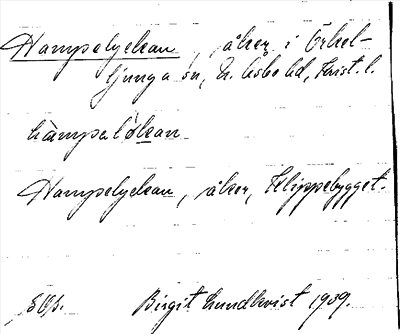 Hampelyckan, åker i Örkel-
ljunga sn, N. Åsbo hd, Krist. l.
hàmpeløkan
Hampelyckan, åker, Klippebygget.
Birgit Lundkvist 1939.